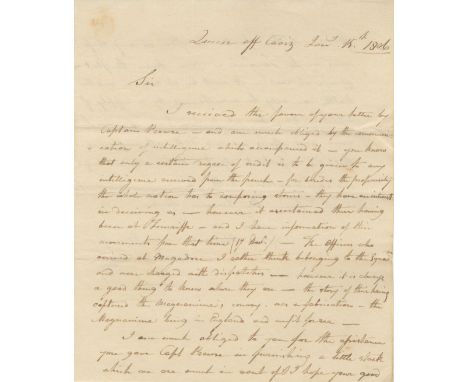 Queen off Cadiz Jan.y 15.th 1806
Sir
I received the favor of your letter by
Captain Browne - and am much obliged by the communi-
cation of intelligence which accompanied it - you know
that only a certain degree of credit is to be given to any
intelligence received from the french - for besides the propensity
the whole nation has to composing stories - they have
in deceiving us - however it ascertained their having
been at Teneriffe - and I have information of their
movements from that time (17 Nov.r) - The Officers who
arrived at Mogadore I rather think belonging to the
and were charged with dispatches - however it is always
a good thing to know where they are - the story of their having
captured the Magnanime's convoy was a fabrication - the
Magnanime being in England and unfit for sea -
I am much obliged to you for the assistance
you gave Capt Browne in furnishing a little stock
which we are much in want of I hope your good